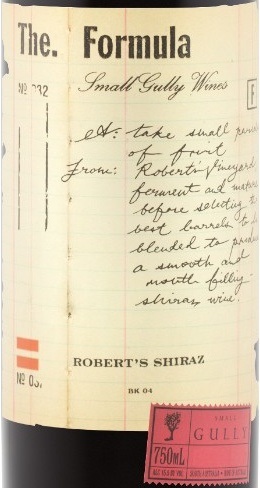 The. Formula
Nº 032
Small Gully Wines
F
A: take small
of fruit
From: Robert's Vineyard
ferment and mature
before selecting
best barrels to
blended to
a smooth and
mouth filling
shiraz wine.
ROBERT'S SHIRAZ
Nº 03
BK 04
SMALL
GULLY
750ML